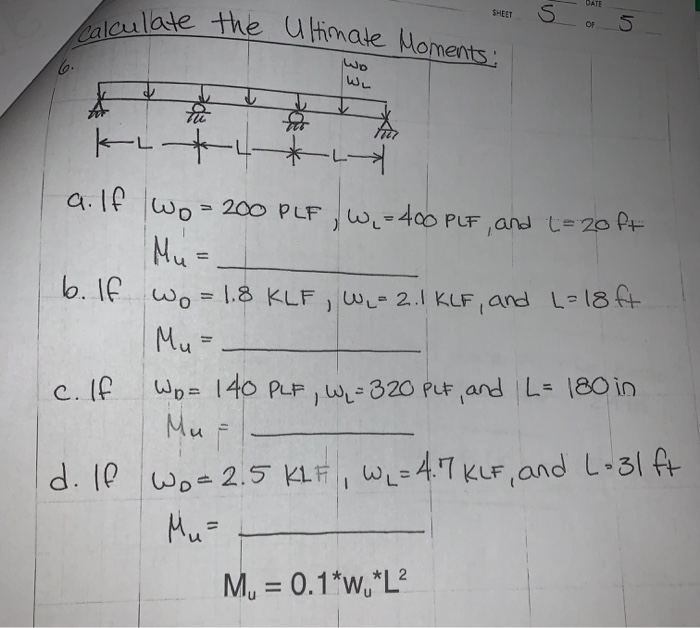 SHEET 5 DATE
OF 5
Calculate the Ultimate Moments:
6.
WD
WL
L L L
a. If WD = 200 PLF, WL = 400 PLF, and L = 20 ft
Mu = ____________
b. If WD = 1.8 KLF, WL = 2.1 KLF, and L = 18 ft
Mu = ____________
c. If WD = 140 PLF, WL = 320 PLF, and L = 180 in
Mu = ____________
d. If WD = 2.5 KLF, WL = 4.7 KLF, and L = 31 ft
Mu = ____________
Mu = 0.1*wu*L²